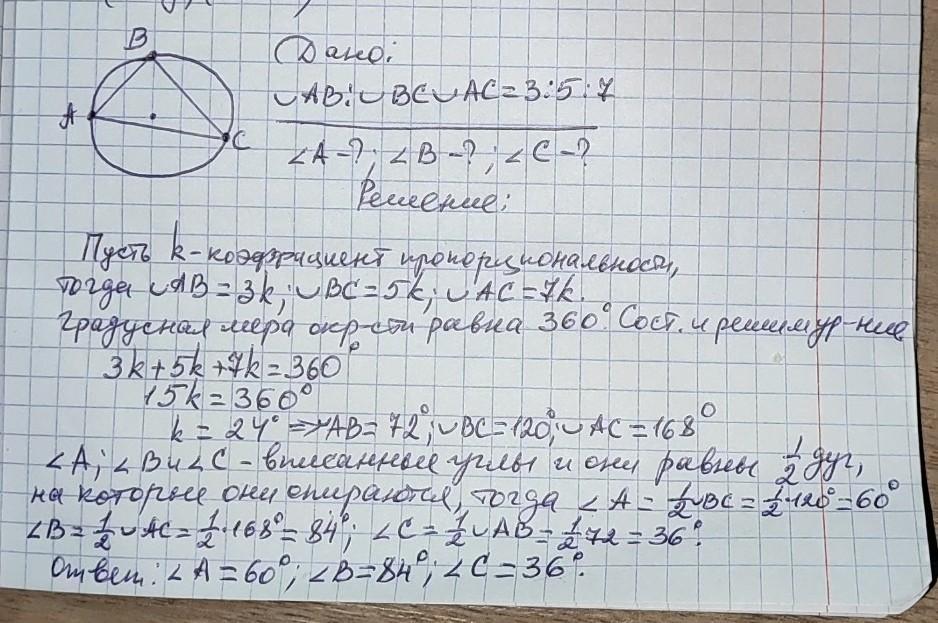 B
A
C
Дано:
◡AB:◡BC◡AC=3:5:7
∠A-?; ∠B-?; ∠C-?
Решение:
Пусть k-коэффициент пропорциональности,
тогда ◡AB=3k;◡BC=5k;◡AC=7k.
Градусная мера окр-сти равна 360°. Сост. и решим ур-ние
3k+5k+7k=360°
15k=360°
k=24°⇒◡AB=72°;◡BC=120°;◡AC=168°
∠A;∠B и ∠C-вписанные углы и они равны 1/2 дуг,
на которые они опираются, тогда ∠A=1/2◡BC=1/2·120°=60°
∠B=1/2◡AC=1/2·168°=84°; ∠C=1/2◡AB=1/2·72=36°.
Ответ: ∠A=60°; ∠B=84°; ∠C=36°.